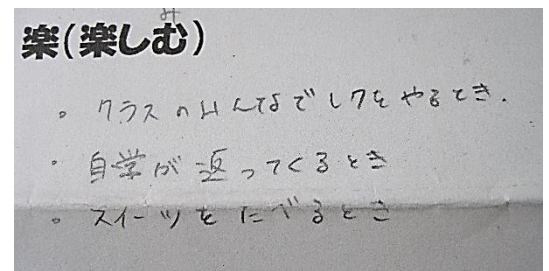 み
楽(楽しむ)
。クラスのみんなでレクをやるとき.
・自学が返ってくるとき
。スイーツをたべるとき